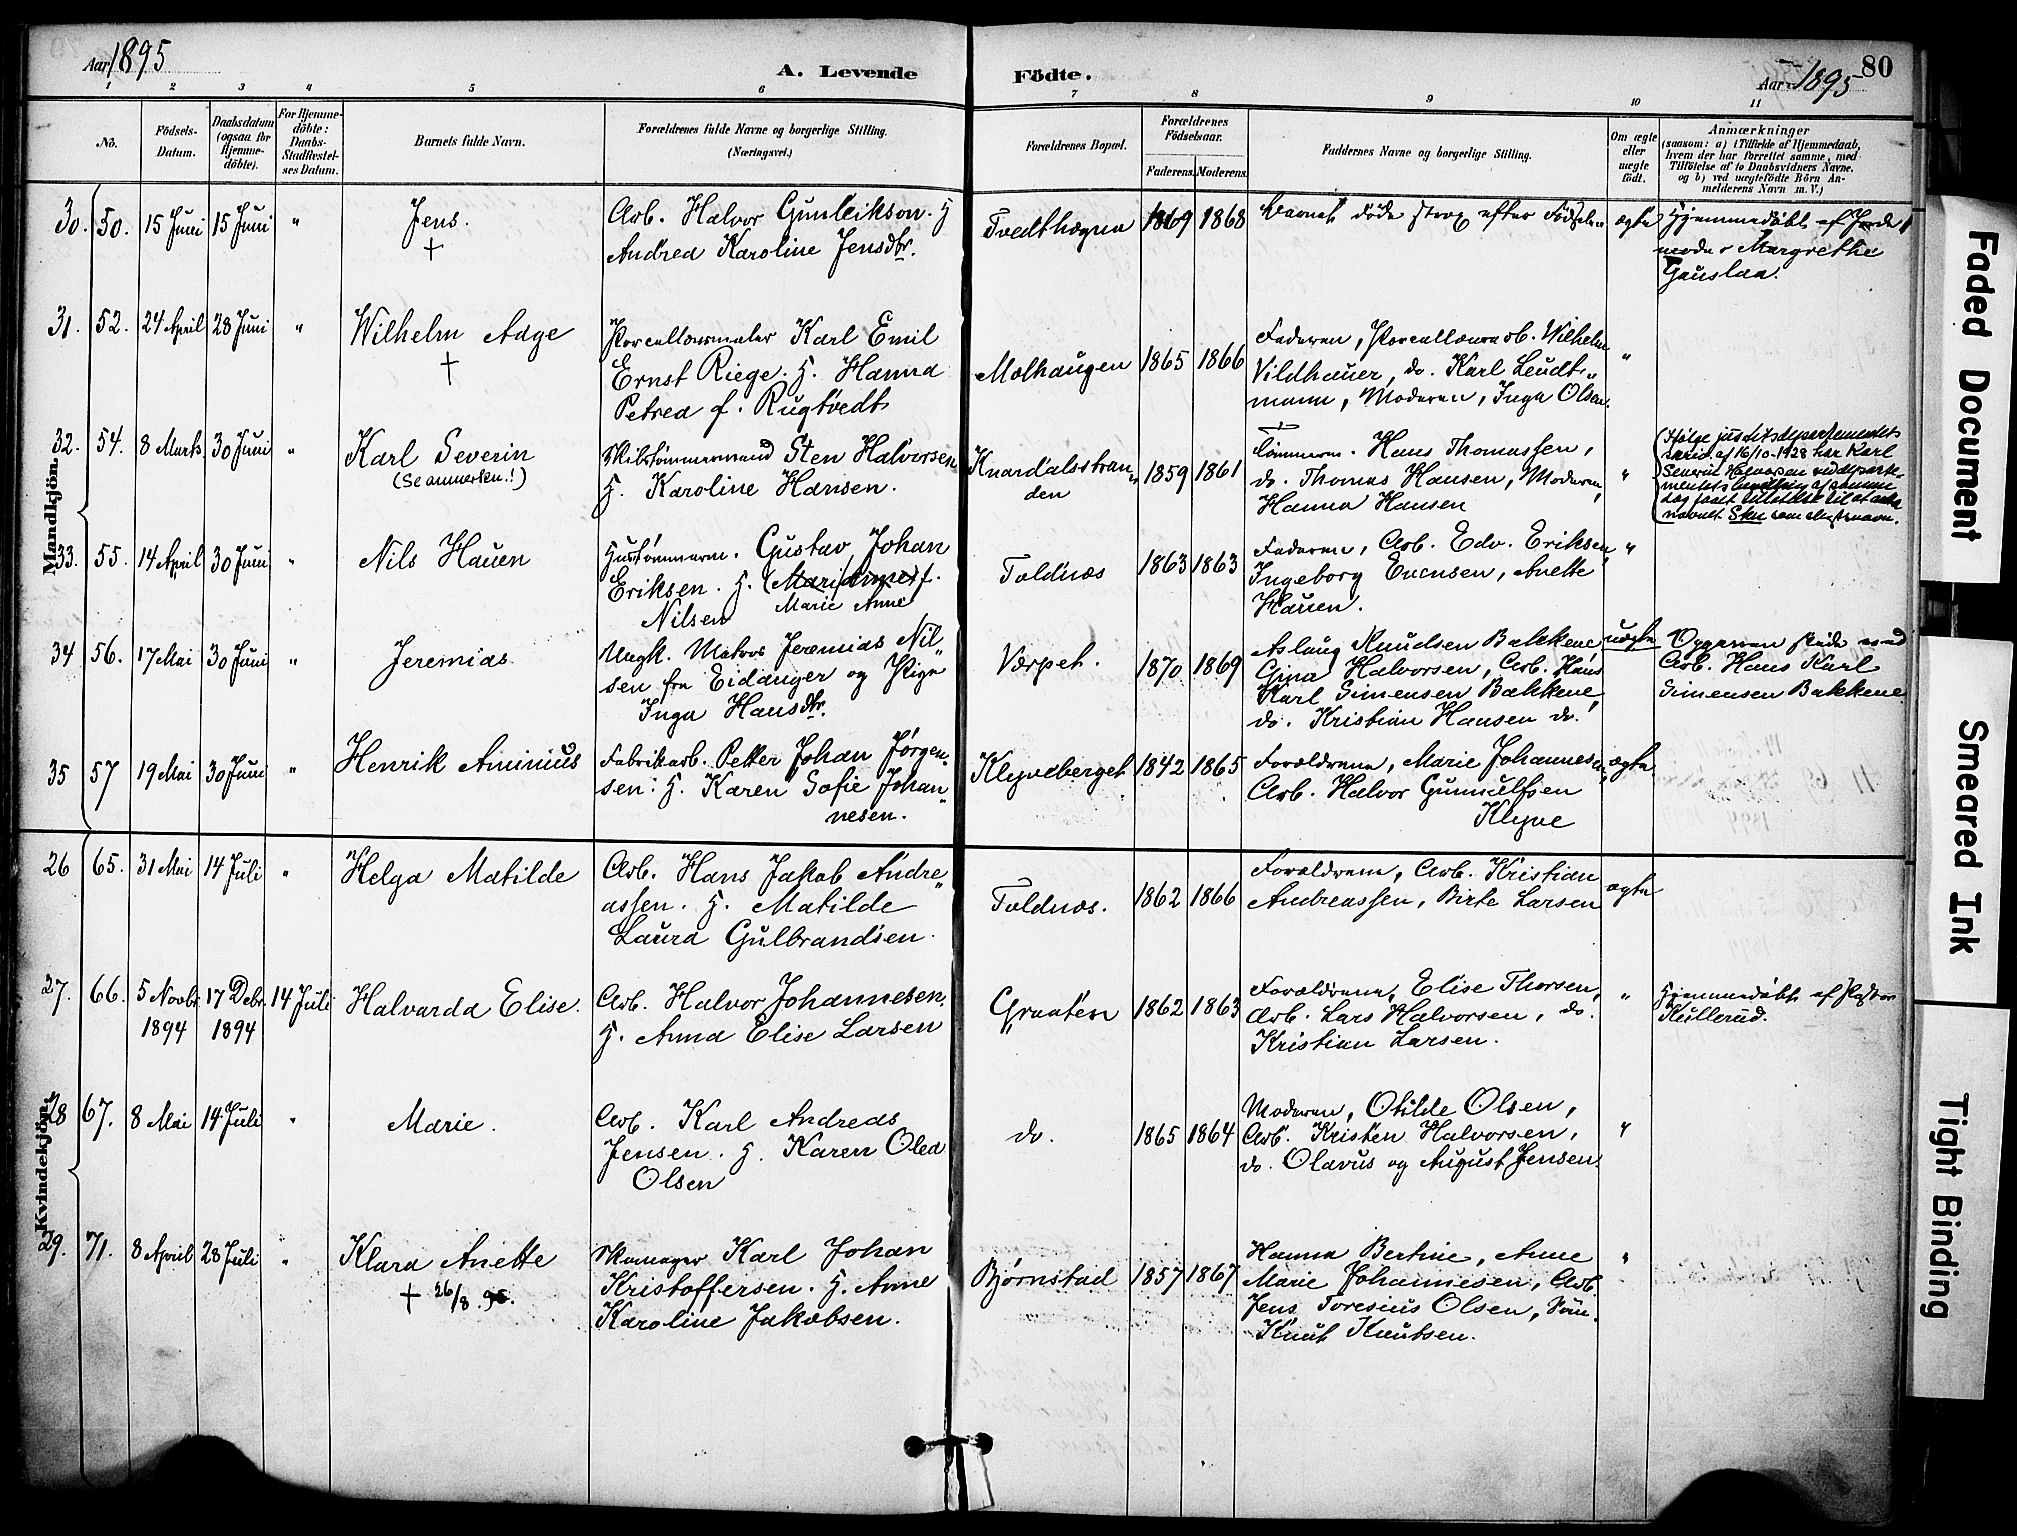 Aar 1895
A. Levende
Födte.
Aar 1895
80
1 2 3 4 5 6 7 8 9 10 11
No.
Födsels-
Datum.
Daabsdatum
(ogsaa for
Hjemme-
döbte).
For Hjemme-
döbte:
Daabs-
Stadfæstel-
ses Datum.
Barnets fulde Navn.
Forældrenes fulde Navne og borgerlige Stilling.
(Næringsvei.)
Forældrenes Bopæl.
Forældrenes
Födselsaar.
Faderens. Moderens.
Faddernes Navne og borgerlige Stilling.
Om ægte
eller
uægte
födt.
Anmærkninger
(saasom: a) i Tilfælde af Hjemmedaab,
hvem der har forrettet samme, med
Tilföielse af to Daabsvidners Navne,
og b) ved uægtefödte Börn An-
melderens Navn m. V.)
Mandkjön.
30. 50. 15 Juni 15 Juni " Jens. †
Arb. Halvor Gunleikson. H
Andrea Karoline Jensdtr.
Tvedthægna 1869 1868
Barnet døde strax efter Fødselen ægte
Hjemmedøbt af Jorde
moder Margrethe
Gauslaa.
31. 52. 24 April 28 Juni " Wilhelm Aage †
Porcellænsmaler Karl Emil
Ernst Riege. H. Hanna
Petrea f. Rugtvedt
Mælhaugen 1865 1866
Faderen, Porcellænsarb. Wilhelm
Vildhauer, do. Karl Leudt-
mann, Moderen, Inga Olsen. "
32. 54. 8 Marts 30 Juni " Karl Severin
(Se anmerkn.!)
Skibstømmermand Sten Halvorsen
H. Karoline Hansen.
Knardalsstran
den 1859 1861
Tømmerm. Hans Thomassen,
do. Thomas Hansen, Moderen,
Hanna Hansen "
Ifølge justitsdepartementets
skriv af 16/10-1928 har Karl
Severin Halvorsen ved departe-
mentets bevilling af samme
dag faaet tilladelse til at anta
navnet som slegtsnavn.
33. 55. 14 April 30 Juni " Nils Hauen
Hustømmerm. Gustav Johan
Eriksen. H. (Mari Anne) f.
Marie Anne
Nilsen
Toldnæs 1863 1863
Faderen, Arb. Edv. Eriksen,
Ingeborg Evensen, Anette
Hauen. "
34 56. 17 Mai 30 Juni " Jeremias
Ungk. Matros Jeremias Nil-
sen fra Eidanger og Pige
Inga Hansdtr.
Værpet. 1870 1869
Aslaug Knudsen Bakkene
Gina Halvorsen, Arb. Hans
Karl Simensen Bakkene,
do. Kristian Hansen do. uægte
Opgaven skede ved
Arb. Hans Karl
Simensen Bakkene
35 57 19 Mai 30 Juni " Henrik Aminius
Fabrikarb. Petter Johan Jørgen-
sen. H. Karen Sofie Johan-
nesen.
Klyveberget 1842 1865
Forældrene, Marie Johannesen,
Arb. Halvor Gunnulfsen
Klyve ægte
Kvindekjön.
26 65. 31 Mai 14 Juli " Helga Matilde
Arb. Hans Jakob Andre-
assen. H. Matilde
Laura Gulbrandsen.
Toldnæs. 1862 1866
Forældrene, Arb. Kristian
Andreassen, Birte Larsen ægte
27. 66. 5 Novbr 1894 17 Debr. 1894 14 Juli Halvarda Elise.
Arb. Halvor Johannesen.
H. Anna Elise Larsen
Graaten 1862 1863
Forældrene, Elise Thorsen,
Arb. Lars Halvorsen, do.
Kristian Larsen. "
Hjemmedøbt af Pastor
Kullerud.
28 67. 8 Mai 14 Juli " Marie.
Arb. Karl Andreas
Jensen. H. Karen Olea
Olsen
do. 1865 1864
Moderen, Otilde Olsen,
Arb. Kristen Halvorsen,
do. Olavus og August Jensen. "
29. 71. 8 April 28 Juli " Klara Anette
† 26/8. 95.
Skomager Karl Johan
Kristoffersen. H. Anne
Karoline Jakobsen.
Bjørnstad 1857 1867
Hanna Bertine, Anne
Marie Johannesen, Arb.
Jens Toresius Olsen, Søm.
Knut Knutsen. "
Faded Document
Smeared Ink
Tight Binding